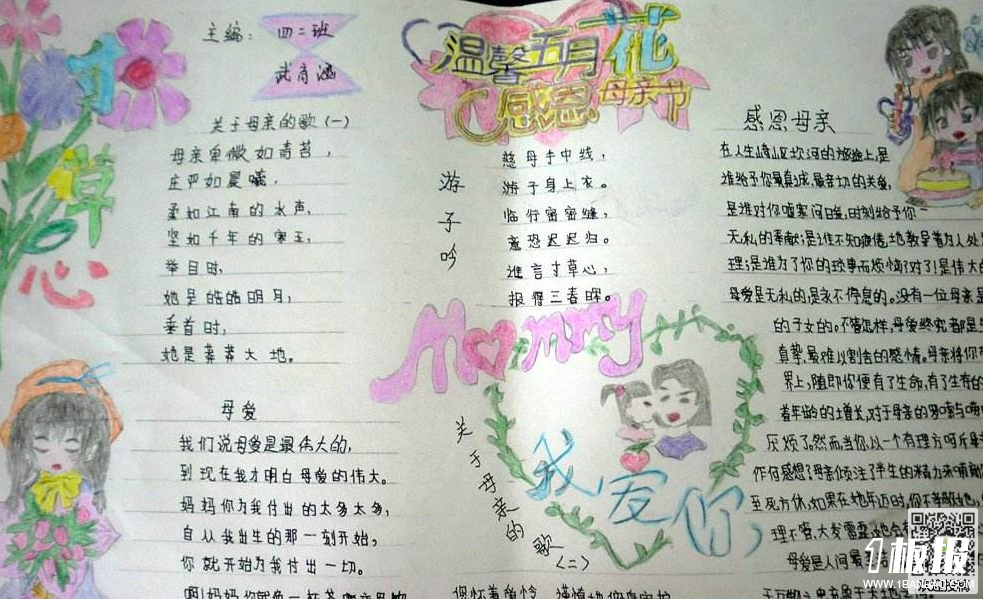 寸草心
主编：四二班
武
关于母亲的歌(一)
母亲卑微如青苔，
庄严如晨曦，
柔如江南的水声，
坚如千年的寒玉，
举目时，
她是皓皓明月，
垂首时，
她是莽莽大地。
母爱
我们说母爱是最伟大的，
到现在我才明白母爱的伟大。
妈妈你为我付出的太多太多，
自从我出生的那一刻开始，
你就开始为我付出一切。
啊！妈妈你就像一杯茶
温馨五月花
感恩母亲节
游子吟
慈母手中线，
游子身上衣。
临行密密缝，
意恐迟迟归。
谁言寸草心，
报得三春晖。
Mommy
我爱你
关于母亲的歌(二)
感恩母亲
在人生崎岖坎坷的旅途上，是
谁给予你最真诚、最亲切的关爱，
是谁对你嘘寒问暖，时刻给予你一
无私的奉献；是谁不知疲倦地教导着为人处
理；是谁为了你的琐事而烦恼？对了！是伟大的
母爱是无私的，是永不停息的。没有一位母亲是
的子女的。不管怎样，母爱终究都是
真挚、最难以割舍的感情。母亲将你
界上，随即你便有了生命，有了生存的
着年龄的增长，对于母亲的
厌烦了。然而，当你以一个有理方呵斥
作何感想？母亲倾注了半生的精力来哺
至死方休，如果在她年迈时，你不孝敬她，
理不睬，大发雷霆，她会
母爱是人间最
1板报
WWW.1BANBAO.COM
欢迎投稿